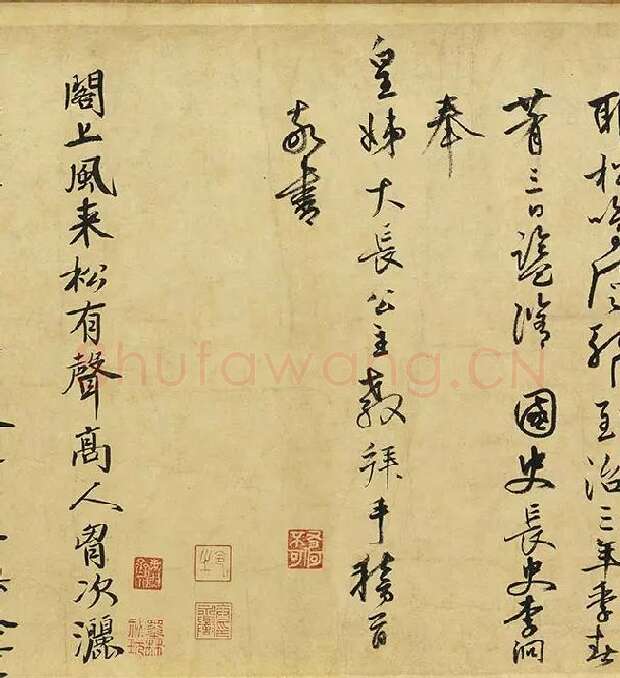 耶松吟風耶至治三年季春
三日監脩 國史長史李泂
奉
皇姊大長公主教拜手稽首
敬書
閣上風来松有聲高人胷次灑
Shufawang.CN